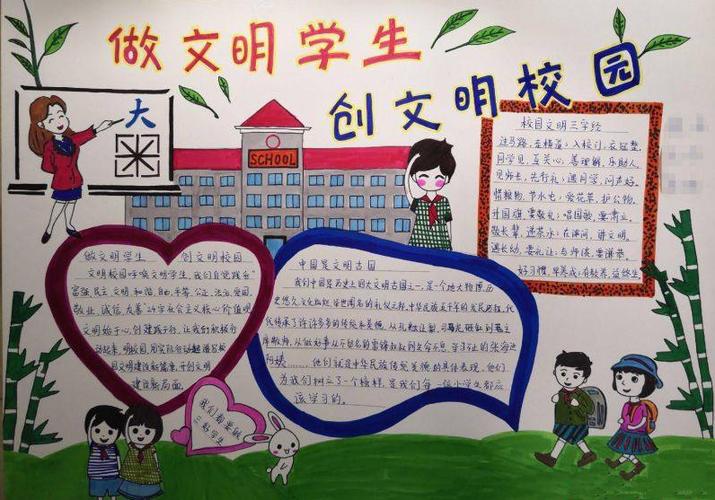 做文明学生
创文明校园
大
米
SCHOOL
校园文明三字经
过马路,左右看;入校门,衣冠整
同学见,互关心;善理解,乐助人
见师长,先行礼;遇同学,问声好
惜粮物,节水电;爱花草,护公物
升国旗,要敬礼;唱国歌,要肃立
敬长辈,进茶水;在课间,讲文明
遇长幼,要礼让;与师谈,要谦恭
好习惯,早养成;有教养,益终生
做文明学生 创文明校园
文明校园呼唤文明学生,我们自觉践行
富强、民主、文明、和谐、自由、平等、公正、法治、爱国、
敬业、诚信、友善"24字社会主义核心价值观
文明始于心,创建践于行,让我们积极行
动起来,用实际行动
园文明建设新篇章,开创文明
建设新局面。
中国是文明古国
我们中国是历史上四大文明古国之一,是个地大物博,历
史悠久,文化灿烂,举世闻名的礼仪之邦,中华民族五千年的发展历程,代
代传承了许许多多的传统和美德,从孔融让梨、司马光砸缸到
从做好事从不留名的雷锋叔叔到
他们就是中华民族传统美德的具体表现,他们
为我们树立了一个榜样,是我们每一位小学生都应
该学习的。
我们都要做
三好学生